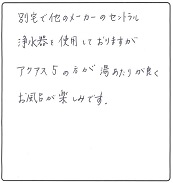 別宅で他のメーカーのセントラル
浄水器を使用しておりますが
アクアス5の方が湯あたりが良く
お風呂が楽しみです。